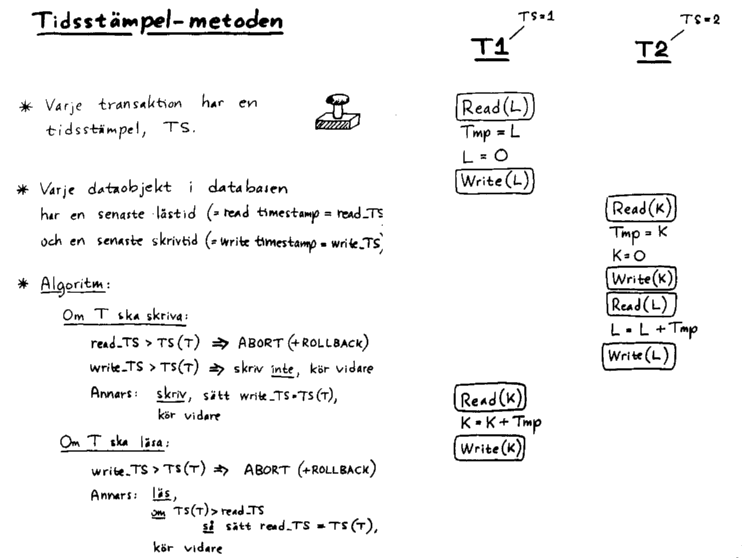 Tidsstämpel-metoden
* Varje transaktion har en
tidsstämpel, TS.
* Varje dataobjekt i databasen
har en senaste lästid (= read timestamp = read_TS
och en senaste skrivtid (= write timestamp = write_TS)
* Algoritm:
Om T ska skriva:
read_TS > TS(T) ⇒ ABORT (+ROLLBACK)
write_TS > TS(T) ⇒ skriv inte, kör vidare
Annars: skriv, sätt write_TS=TS(T),
kör vidare
Om T ska läsa:
write_TS > TS(T) ⇒ ABORT (+ROLLBACK)
Annars: läs,
om TS(T)>read_TS
så sätt read_TS = TS(T),
kör vidare
TS=1
T1
Read(L)
Tmp = L
L = 0
Write(L)
Read(K)
K = K + Tmp
Write(K)
TS=2
T2
Read(K)
Tmp = K
K=0
Write(K)
Read(L)
L = L + Tmp
Write(L)